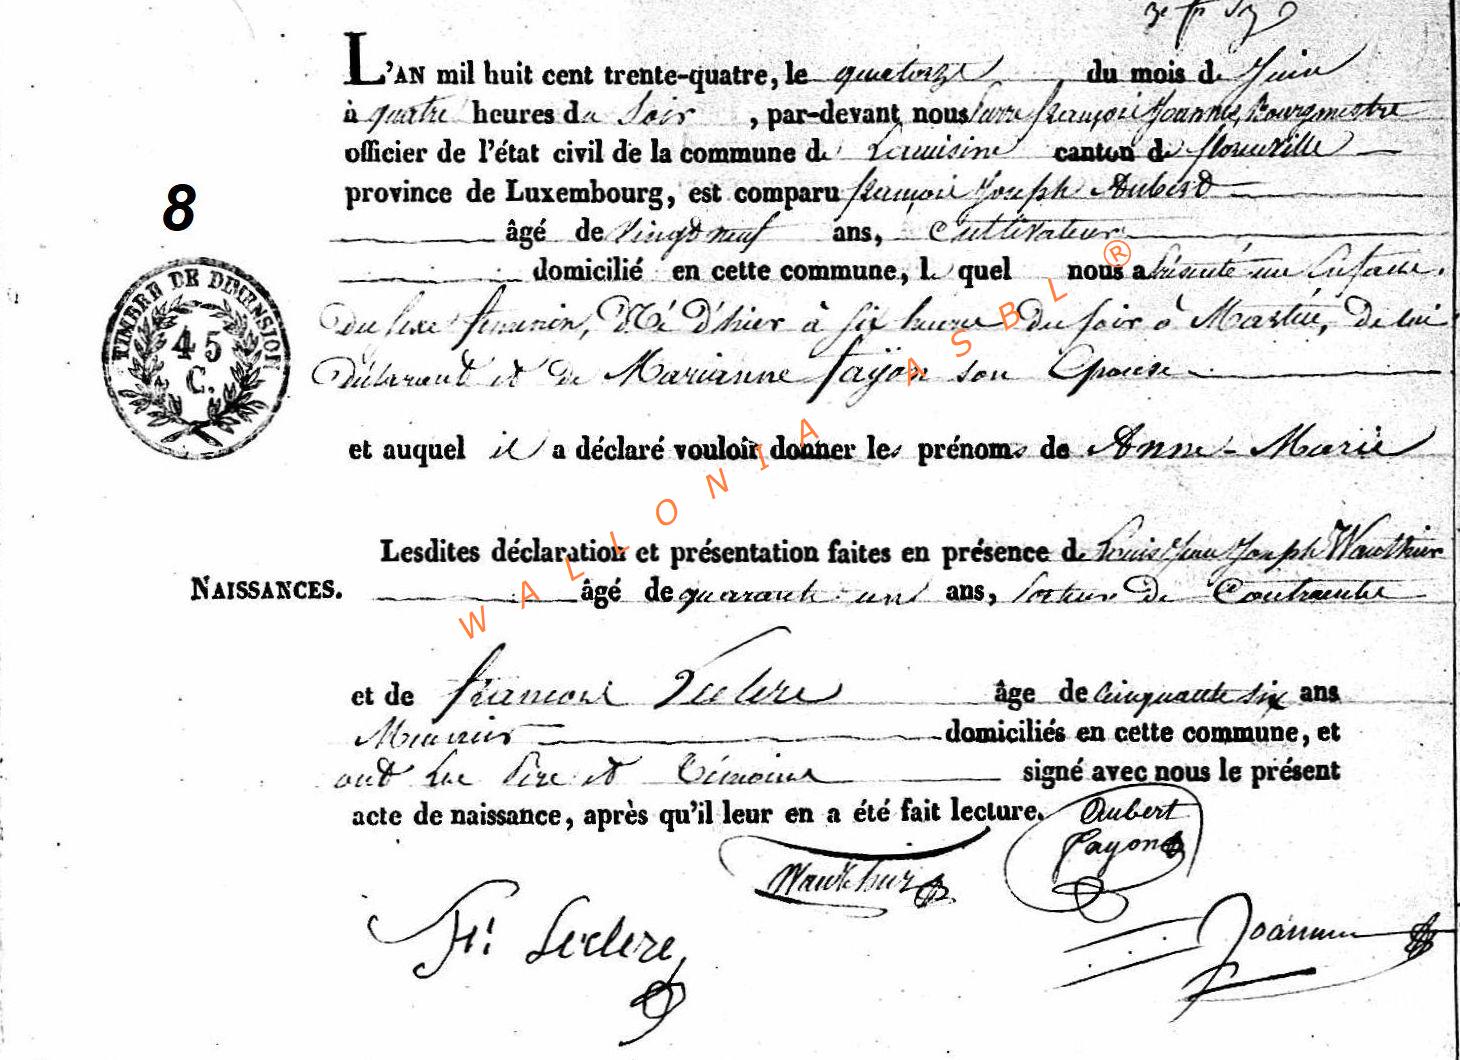 L'AN mil huit cent trente-quatre, le quatorze du mois de Juin
à quatre heures du Soir , par-devant nous Pierre françois Joannes, Bourgmestre
officier de l'état civil de la commune de canton de florenville
province de Luxembourg, est comparu françois Joseph Aubert
8
âgé de Vingt neuf ans, Cultivateur
domicilié en cette commune, le quel nous a présenté un Enfant
TIMBRE DE DIMENSION
45
C.
Du sexe féminin, Né D'hier à six heures du soir à Martué, De lui
Déclarant et de Marianne fayon son Epouse
et auquel il a déclaré vouloir donner les prénoms de Anne-Marie
Lesdites déclaration et présentation faites en présence de Louis Jean Joseph Wauthier
NAISSANCES. âgé de quarante un ans, de
et de françois Leclere âge de Cinquante six ans
Meunier domiciliés en cette commune, et
ont Les Père et Témoins signé avec nous le présent
acte de naissance, après qu'il leur en a été fait lecture.
Aubert
fayon
Wauthier
Fs Leclere
Joannes
WALLONIA ASBL ®